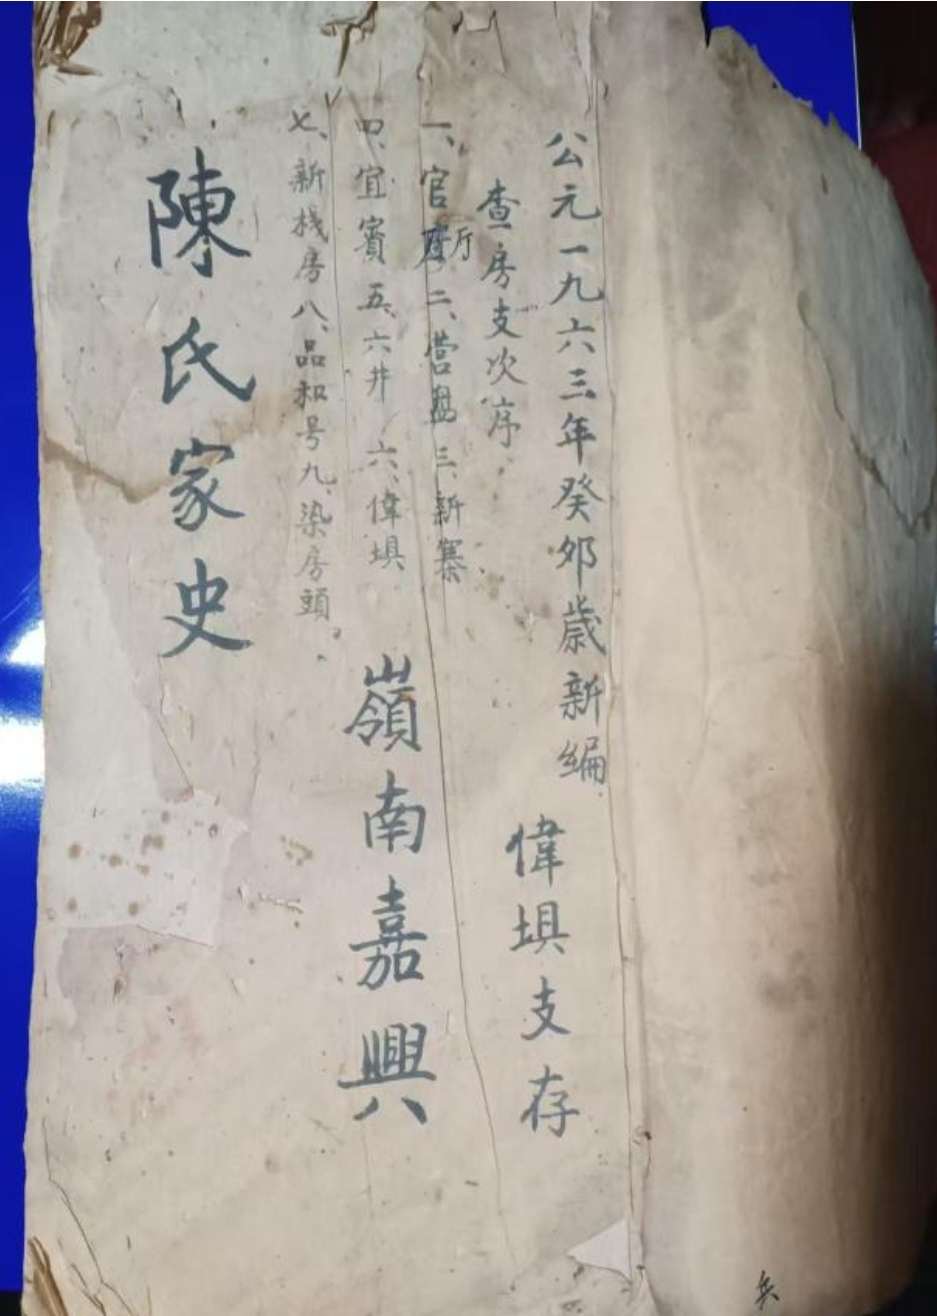 公元一九六三年癸卯歲新編
偉埧支存
查房支次序
一、官廳厅二、营盘三、新寨
四、宜賓五、六井 六、偉埧
七、新棧房八、品和号九、染房頭
嶺南嘉興
陳氏家史
兵